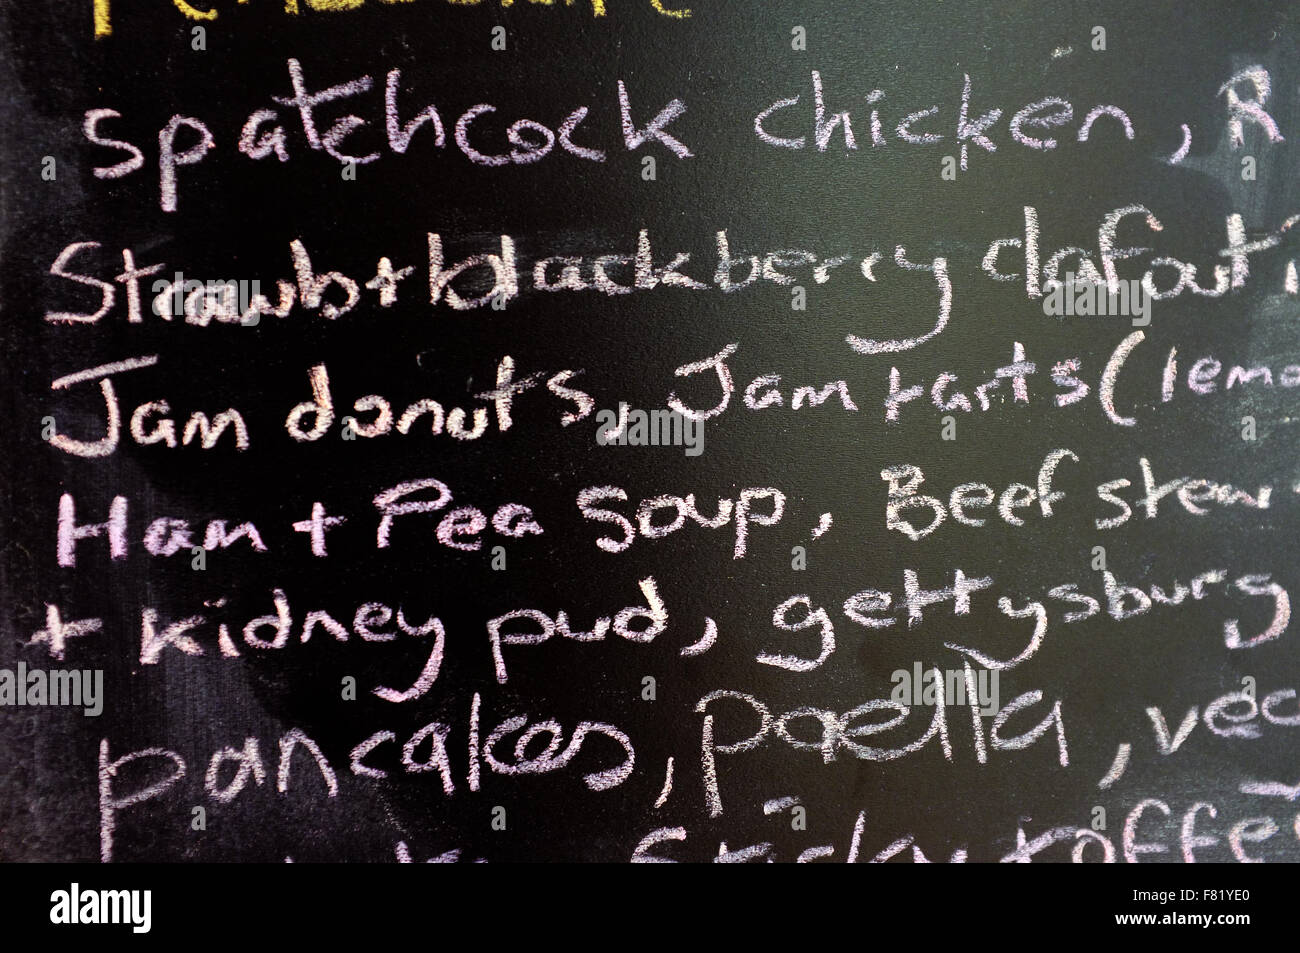 spatchcock chicken, R
Strawb + blackberry clafouti
Jam donuts, Jam tarts (lemo
Ham + Pea soup, Beef stew +
+ kidney pud, gettysburg
pancakes, paella, veg
Sticky toffee
alamy
Image ID: F81YE0
www.alamy.com